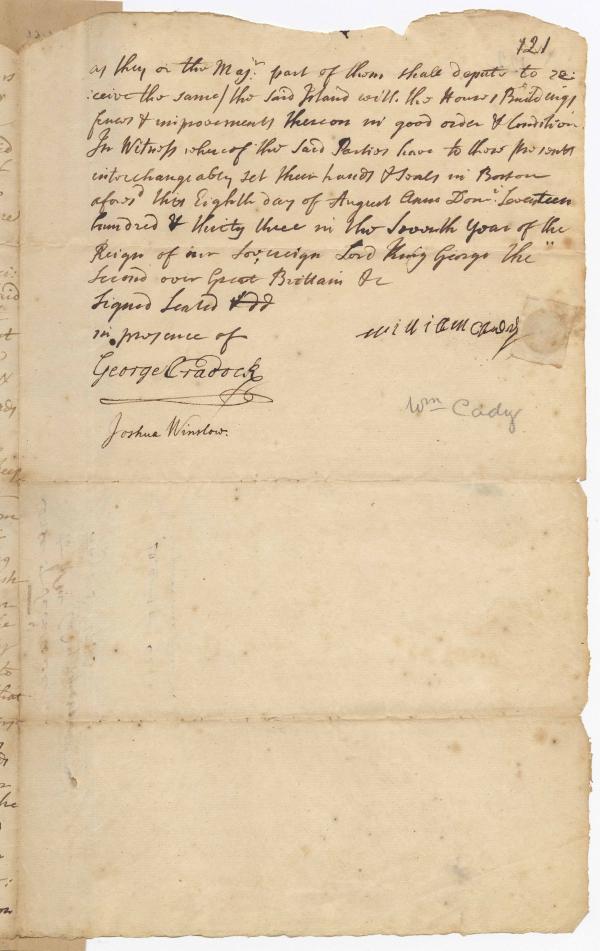 121
as they or the Maj.r part of them shall depute to re=
=ceive the same / the said Island with the Houses Buildings
fences & improvements thereon in good order & Condition
In Witness whereof the said Parties have to these presents
interchangeably set their hands & Seals in Boston
afores.d this Eighth day of August Anno Dom.i Seventeen
hundred & thirty three in the Seventh Year of the
Reign of our Sovereign Lord King George the
Second over Great Brittain &c
Signed Sealed & dd
in presence of
William Cady
George Cradock
Wm Cady
Joshua Winslow.